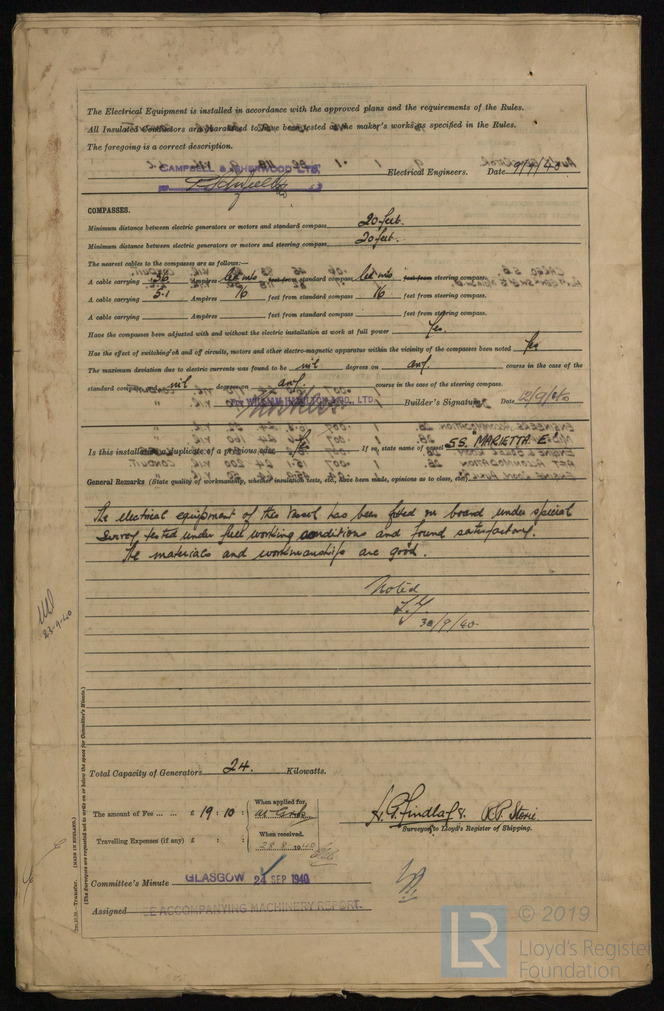 The Electrical Equipment is installed in accordance with the approved plans and the requirements of the Rules.
All Insulated Conductors are guaranteed to have been tested at the maker's works as specified in the Rules.
The foregoing is a correct description.
CAMPBELL & ISHERWOOD LTD.
Electrical Engineers. Date 9/9/40
COMPASSES.
Minimum distance between electric generators or motors and standard compass 20 feet.
Minimum distance between electric generators or motors and steering compass 20 feet.
The nearest cables to the compasses are as follows:—
A cable carrying .36 Ampères led into feet from standard compass led into feet from steering compass.
A cable carrying 5.1 Ampères 16 feet from standard compass 16 feet from steering compass.
A cable carrying Ampères feet from standard compass feet from steering compass.
Have the compasses been adjusted with and without the electric installation at work at full power Yes.
Has the effect of switching on and off circuits, motors and other electro-magnetic apparatus within the vicinity of the compasses been noted Yes
The maximum deviation due to electric currents was found to be nil degrees on any course in the case of the
standard compass nil degrees on any course in the case of the steering compass.
WILLIAM HAMILTON & CO., LTD.
Builder's Signature. Date 12/9/40
Is this installation a duplicate of a previous case Yes If so, state name of vessel S.S. "MARIETTA E."
General Remarks (State quality of workmanship, whether insulation tests, etc., have been made, opinions as to class, etc.)
The electrical equipment of this vessel has been fitted on board under special
survey tested under full working conditions and found satisfactory.
The materials and workmanship are good.
Noted
30/9/40
23-9-40
Total Capacity of Generators 24. Kilowatts.
The amount of Fee ... ... £ 19 : 10 :
When applied for,
Travelling Expenses (if any) £ : :
When received.
28.8.1940
H. G. Findlay & R. P. Storie
Surveyors to Lloyd's Register of Shipping.
Committee's Minute GLASGOW 24 SEP 1940
Assigned SEE ACCOMPANYING MACHINERY REPORT.
Transfer. (MADE IN ENGLAND.)
(The Surveyors are requested not to write on or below the space for Committee's Minute.)
LR
© 2019
Lloyd's Register
Foundation